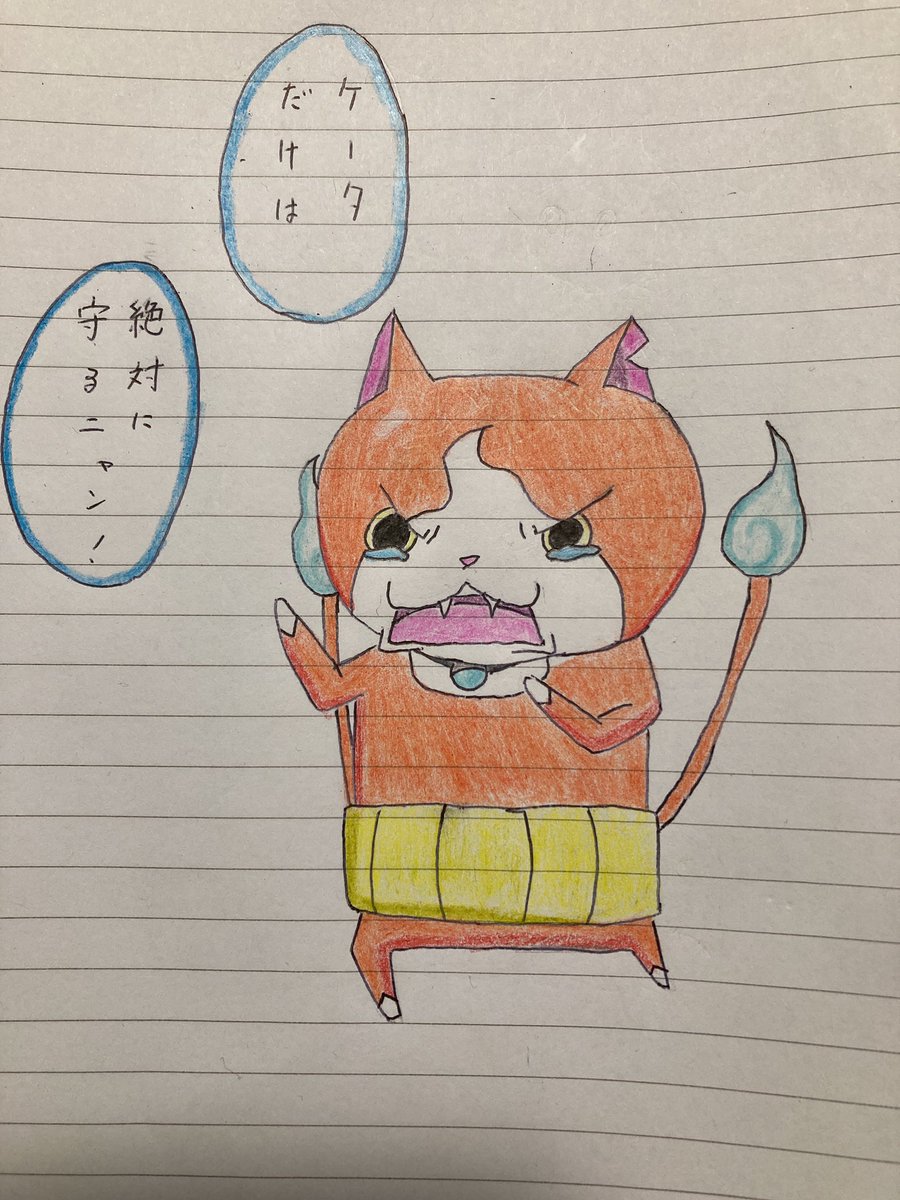 ケータ
だけは
絶対に
守るニャン!